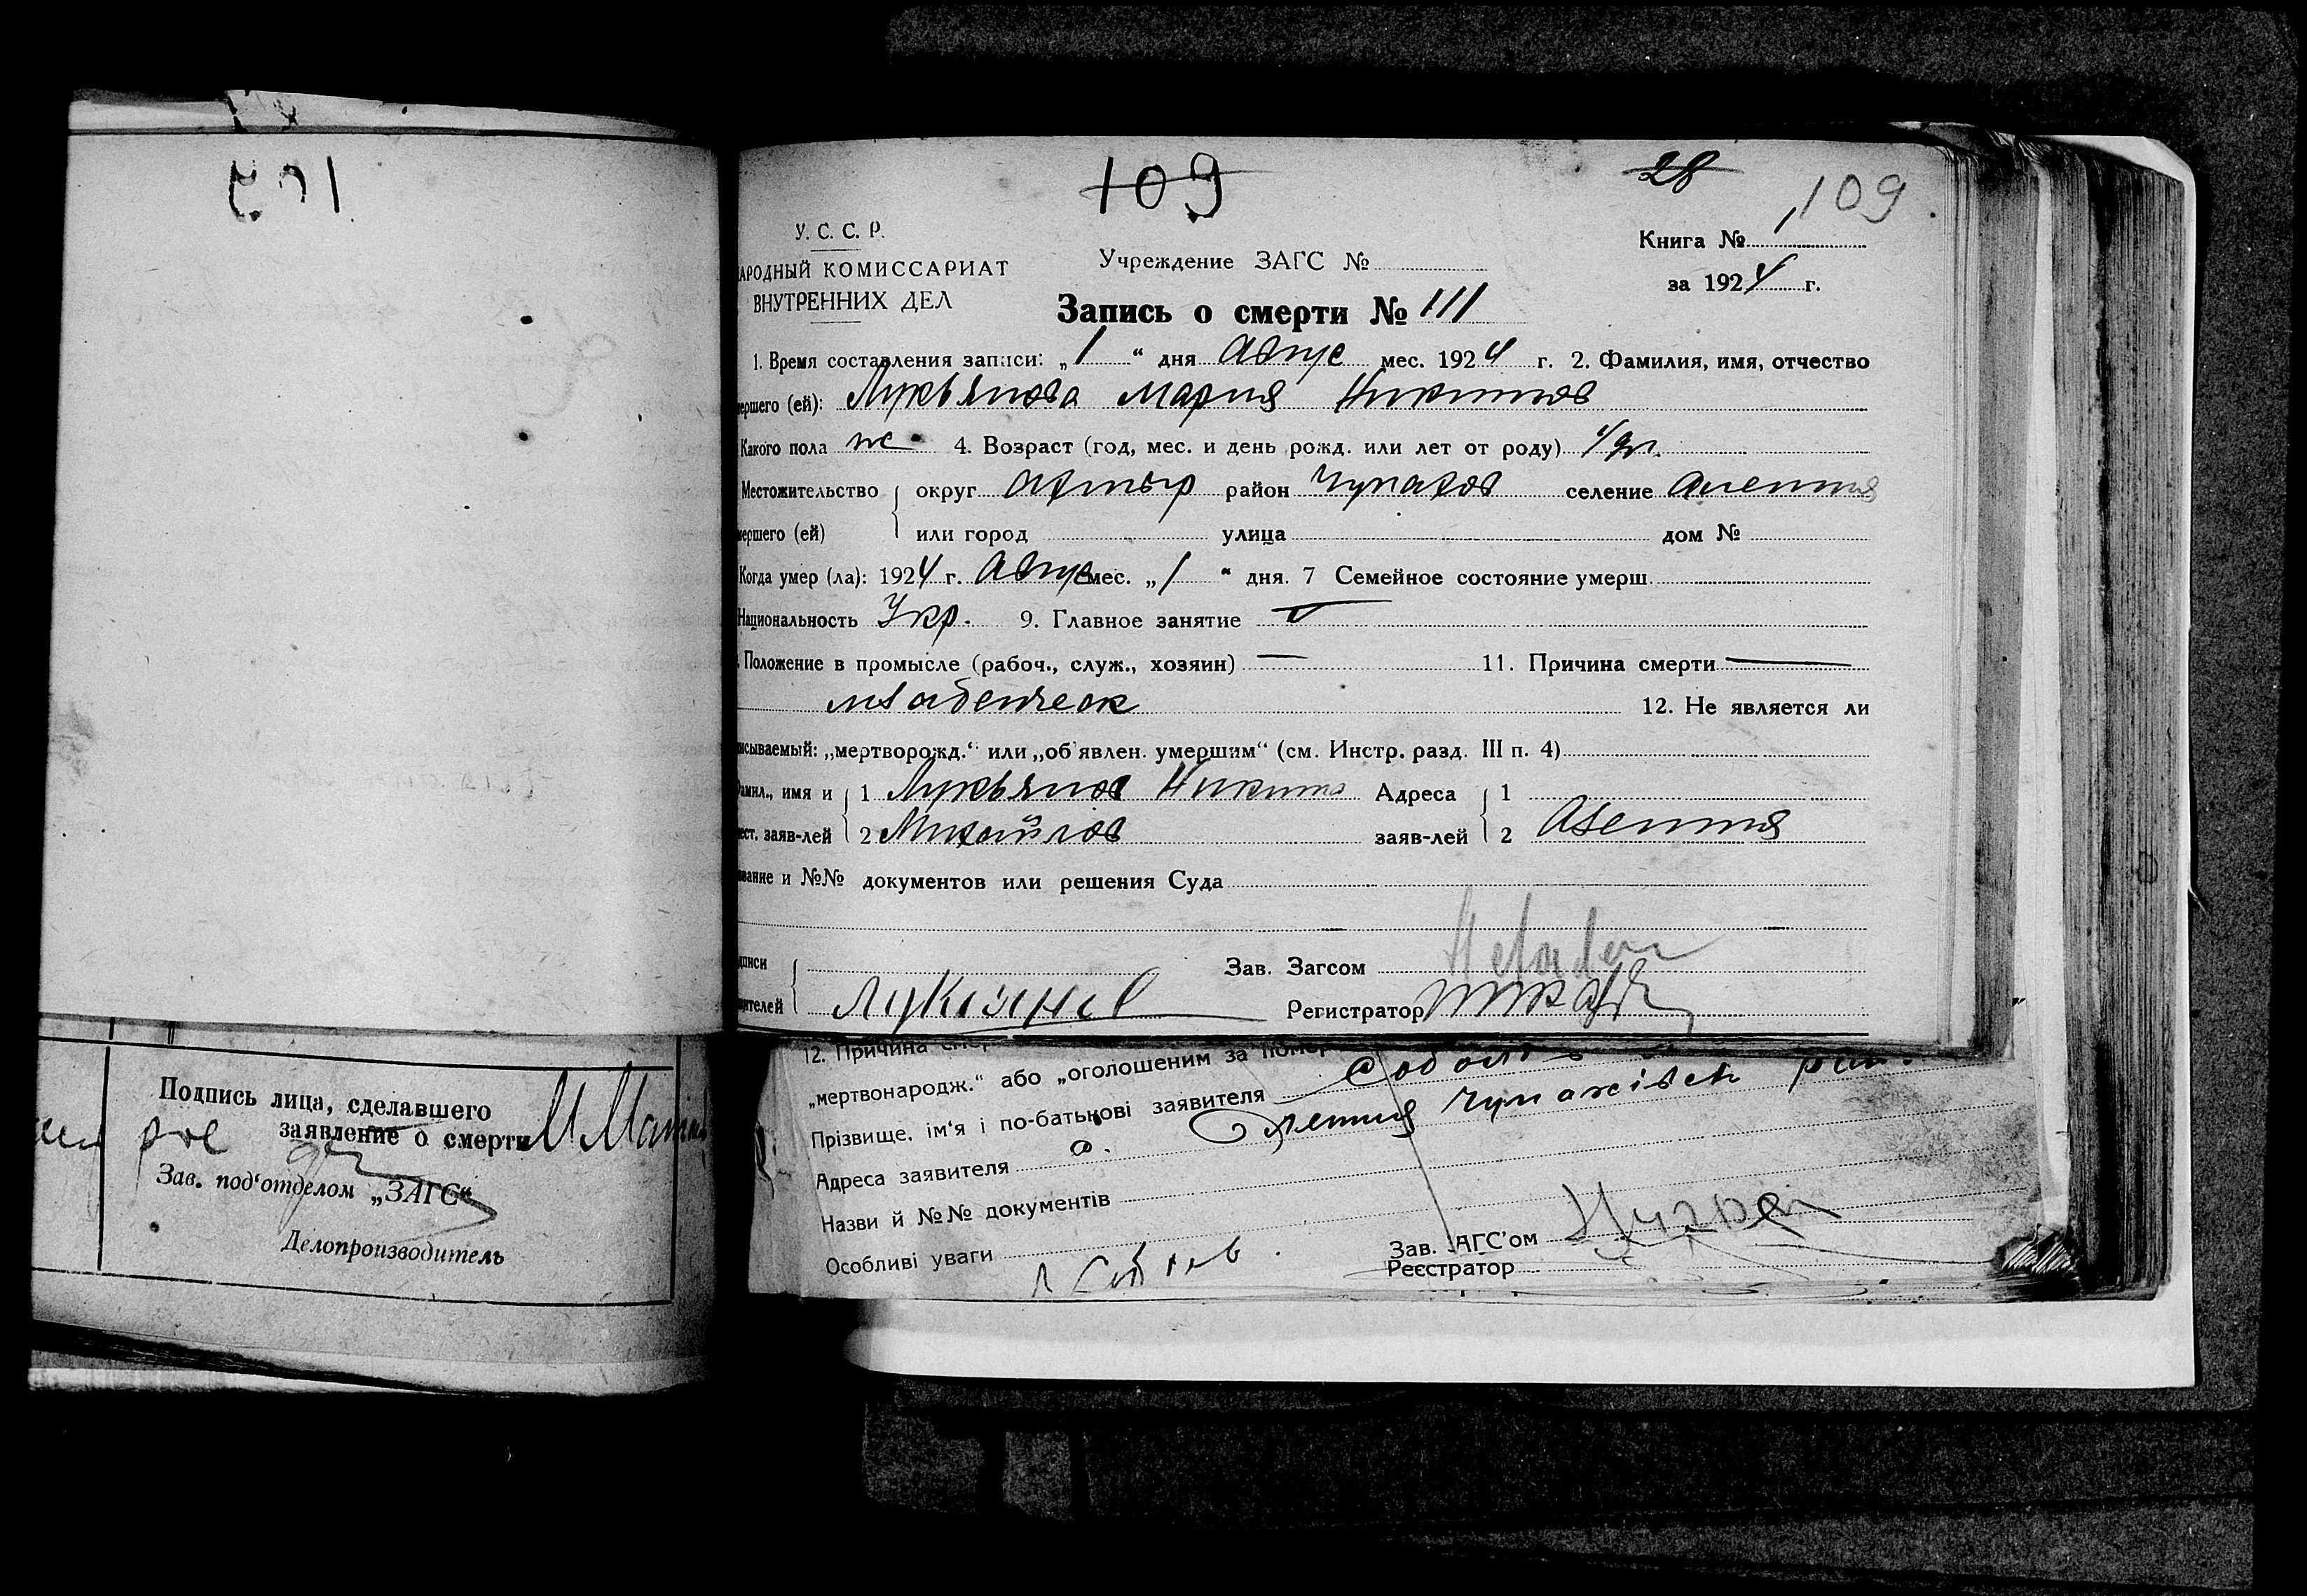 109
28
109
У. С. С. Р.
АРОДНЫЙ КОМИССАРИАТ
ВНУТРЕННИХ ДЕЛ
Учреждение ЗАГС №
Книга № 1
за 1924 г.
Запись о смерти № 111
1. Время составления записи: „1“ дня Авгус мес. 1924 г. 2. Фамилия, имя, отчество
мершего (ей): Лукьянова Мария Никитов
Какого пола ж 4. Возраст (год, мес. и день рожд. или лет от роду)
Местожительство округ Ахтыр район Чупахов селение
мершего (ей) или город улица дом №
Когда умер (ла): 1924 г. Авгус мес. „1“ дня. 7 Семейное состояние умерш.
Национальность Укр. 9. Главное занятие —
. Положение в промысле (рабоч., служ., хозяин) — 11. Причина смерти —
младенческ
12. Не является ли
исываемый: „мертворожд.“ или „об'явлен. умершим“ (см. Инстр. разд. III п. 4)
амил., имя и 1 Лукьянов Никита Адреса 1
ест. заяв-лей 2 Михайлов заяв-лей 2
вание и №№ документов или решения Суда
дписи Зав. Загсом
ителей Лукянов Регистратор
Подпись лица, сделавшего
заявление о смерти
Зав. под'отделом „ЗАГС“
Делопроизводитель
12. Причина
„мертвонародж.“ або „оголошеним за помер
Прізвище, ім'я і по-батькові заявителя
Адреса заявителя Чупахівск
Назви й №№ документів
Особливі уваги
Зав. ЗАГС'ом
Реєстратор